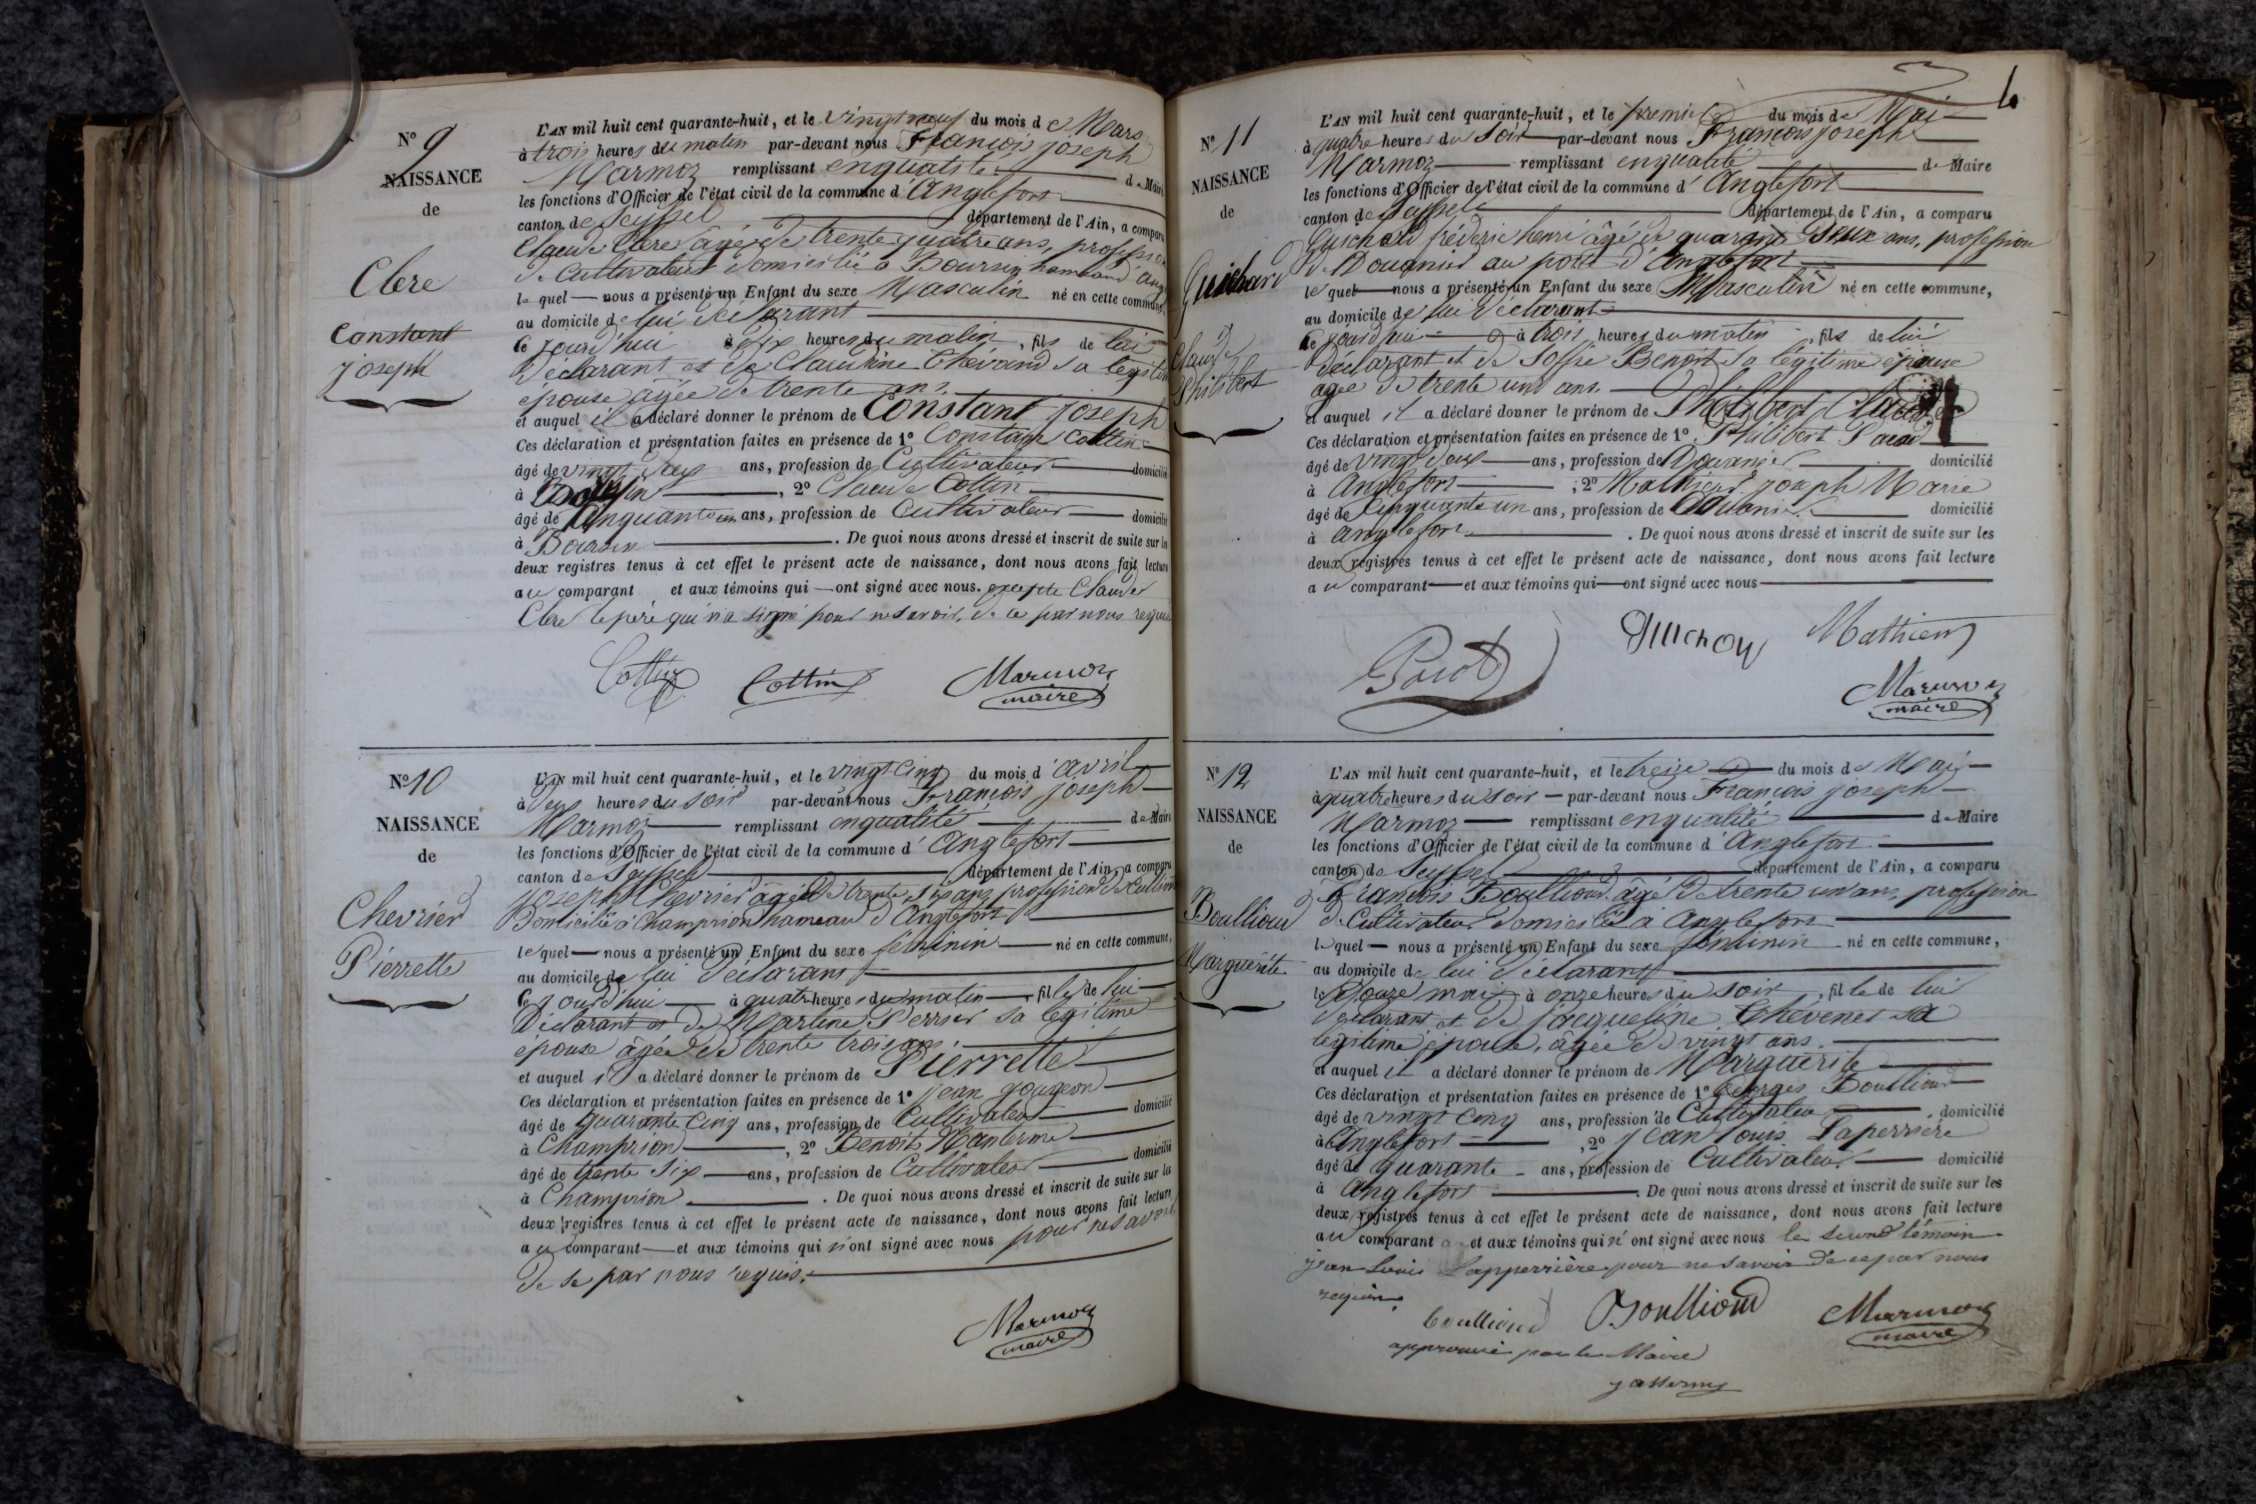 N° 9
NAISSANCE
de
Clere
Constant
joseph
L'AN mil huit cent quarante-huit, et le vingt neuf du mois de Mars
à trois heures du matin par-devant nous François joseph
Marmoz remplissant en qualité de Maire
les fonctions d'Officier de l'état civil de la commune d'Anglefort
canton de Seyssel département de l'Ain, a comparu
Claude Clere âgé de trente quatre ans, profession
de Cultivateur domicilié à Boursin hameau d'Ang
lequel nous a présenté un Enfant du sexe Masculin né en cette commune,
au domicile de lui déclarant
Ce jourd'hui à dix heures du matin, fils de lui
déclarant et de Claudine Chévand sa légitim
épouse âgée de trente ans.
et auquel il a déclaré donner le prénom de Constant joseph
Ces déclaration et présentation faites en présence de 1° Constant Cottin
âgé de vingt ans, profession de Cultivateur domicilié
à Boursin, 2° Claude Cottin
âgé de Cinquante un ans, profession de Cultivateur domicilié
à Boursin. De quoi nous avons dressé et inscrit de suite sur les
deux registres tenus à cet effet le présent acte de naissance, dont nous avons fait lecture
au comparant et aux témoins qui ont signé avec nous. excepté Claude
Clere le père qui n'a signé pour ne savoir, de ce par nous requis
Cottin Cottin Marmoz
maire
N° 10
NAISSANCE
de
Chevrier
Pierrette
L'AN mil huit cent quarante-huit, et le vingt cinq du mois d'avril
à deux heures du soir par-devant nous François joseph
Marmoz remplissant en qualité de Maire
les fonctions d'Officier de l'état civil de la commune d'Anglefort
canton de Seyssel département de l'Ain, a comparu
joseph Chevrier âgé de trente six ans profession de Cultiv
Domicilié à Champrion hameau d'Anglefort
lequel nous a présenté un Enfant du sexe féminin né en cette commune,
au domicile de lui déclarant
Ce jourd'hui à quatre heures du matin, fille de lui
Déclarant et de Martine Perrier sa légitime
épouse âgée de trente trois ans.
et auquel il a déclaré donner le prénom de Pierrette
Ces déclaration et présentation faites en présence de 1° jean gougeon
âgé de quarante cinq ans, profession de Cultivateur domicilié
à Champrion, 2° Benoit
âgé de trente six ans, profession de Cultivateur domicilié
à Champrion. De quoi nous avons dressé et inscrit de suite sur les
deux registres tenus à cet effet le présent acte de naissance, dont nous avons fait lecture
au comparant et aux témoins qui n'ont signé avec nous pour ne savoir
de se par nous requis.
Marmoz
maire
N° 11
NAISSANCE
de
Guichard
Claude
Philibert
L'AN mil huit cent quarante-huit, et le premier du mois de Mai
à quatre heures du soir par-devant nous François joseph
Marmoz remplissant en qualité de Maire
les fonctions d'Officier de l'état civil de la commune d'Anglefort
canton de Seyssel département de l'Ain, a comparu
Guichard fréderic henri âgé de quarante deux ans, profession
de Douanier au port d'Anglefort
lequel nous a présenté un Enfant du sexe Masculin né en cette commune,
au domicile de lui déclarant
Ce jourd'hui à trois heures du matin, fils de lui
déclarant et de Sophie Benoit sa légitime épouse
agée de trente un ans
et auquel il a déclaré donner le prénom de Philibert Claude
Ces déclaration et présentation faites en présence de 1° Philibert
âgé de vingt deux ans, profession de Douanier domicilié
à Anglefort, 2° Mathieu joseph Marie
âgé de Cinquante un ans, profession de Douanier domicilié
à anglefort. De quoi nous avons dressé et inscrit de suite sur les
deux registres tenus à cet effet le présent acte de naissance, dont nous avons fait lecture
au comparant et aux témoins qui ont signé avec nous
Mathieu
Marmoz
maire
N° 12
NAISSANCE
de
Boullioud
Marguerite
L'AN mil huit cent quarante-huit, et le treize du mois de Mai
à quatre heures du soir par-devant nous François joseph
Marmoz remplissant en qualité de Maire
les fonctions d'Officier de l'état civil de la commune d'Anglefort
canton de Seyssel département de l'Ain, a comparu
François Boullioud âgé de trente un ans, profession
de Cultivateur domicilié à Anglefort
lequel nous a présenté un Enfant du sexe féminin né en cette commune,
au domicile de lui déclarant
le douze mai à onze heures du soir, fille de lui
déclarant et de jacqueline Chévenet sa
légitime épouse, âgée de vingt ans.
et auquel il a déclaré donner le prénom de Marguerite
Ces déclaration et présentation faites en présence de 1° Georges Boullioud
âgé de vingt cinq ans, profession de Cultivateur domicilié
à Anglefort, 2° jean louis Laperriere
âgé de quarante ans, profession de Cultivateur domicilié
à Anglefort. De quoi nous avons dressé et inscrit de suite sur les
deux registres tenus à cet effet le présent acte de naissance, dont nous avons fait lecture
au comparant et aux témoins qui n'ont signé avec nous le second témoin
jean Louis Lapperrière pour ne savoir de ce par nous
requis.
boullioud Boullioud Marmoz
maire
approuvé par le Maire